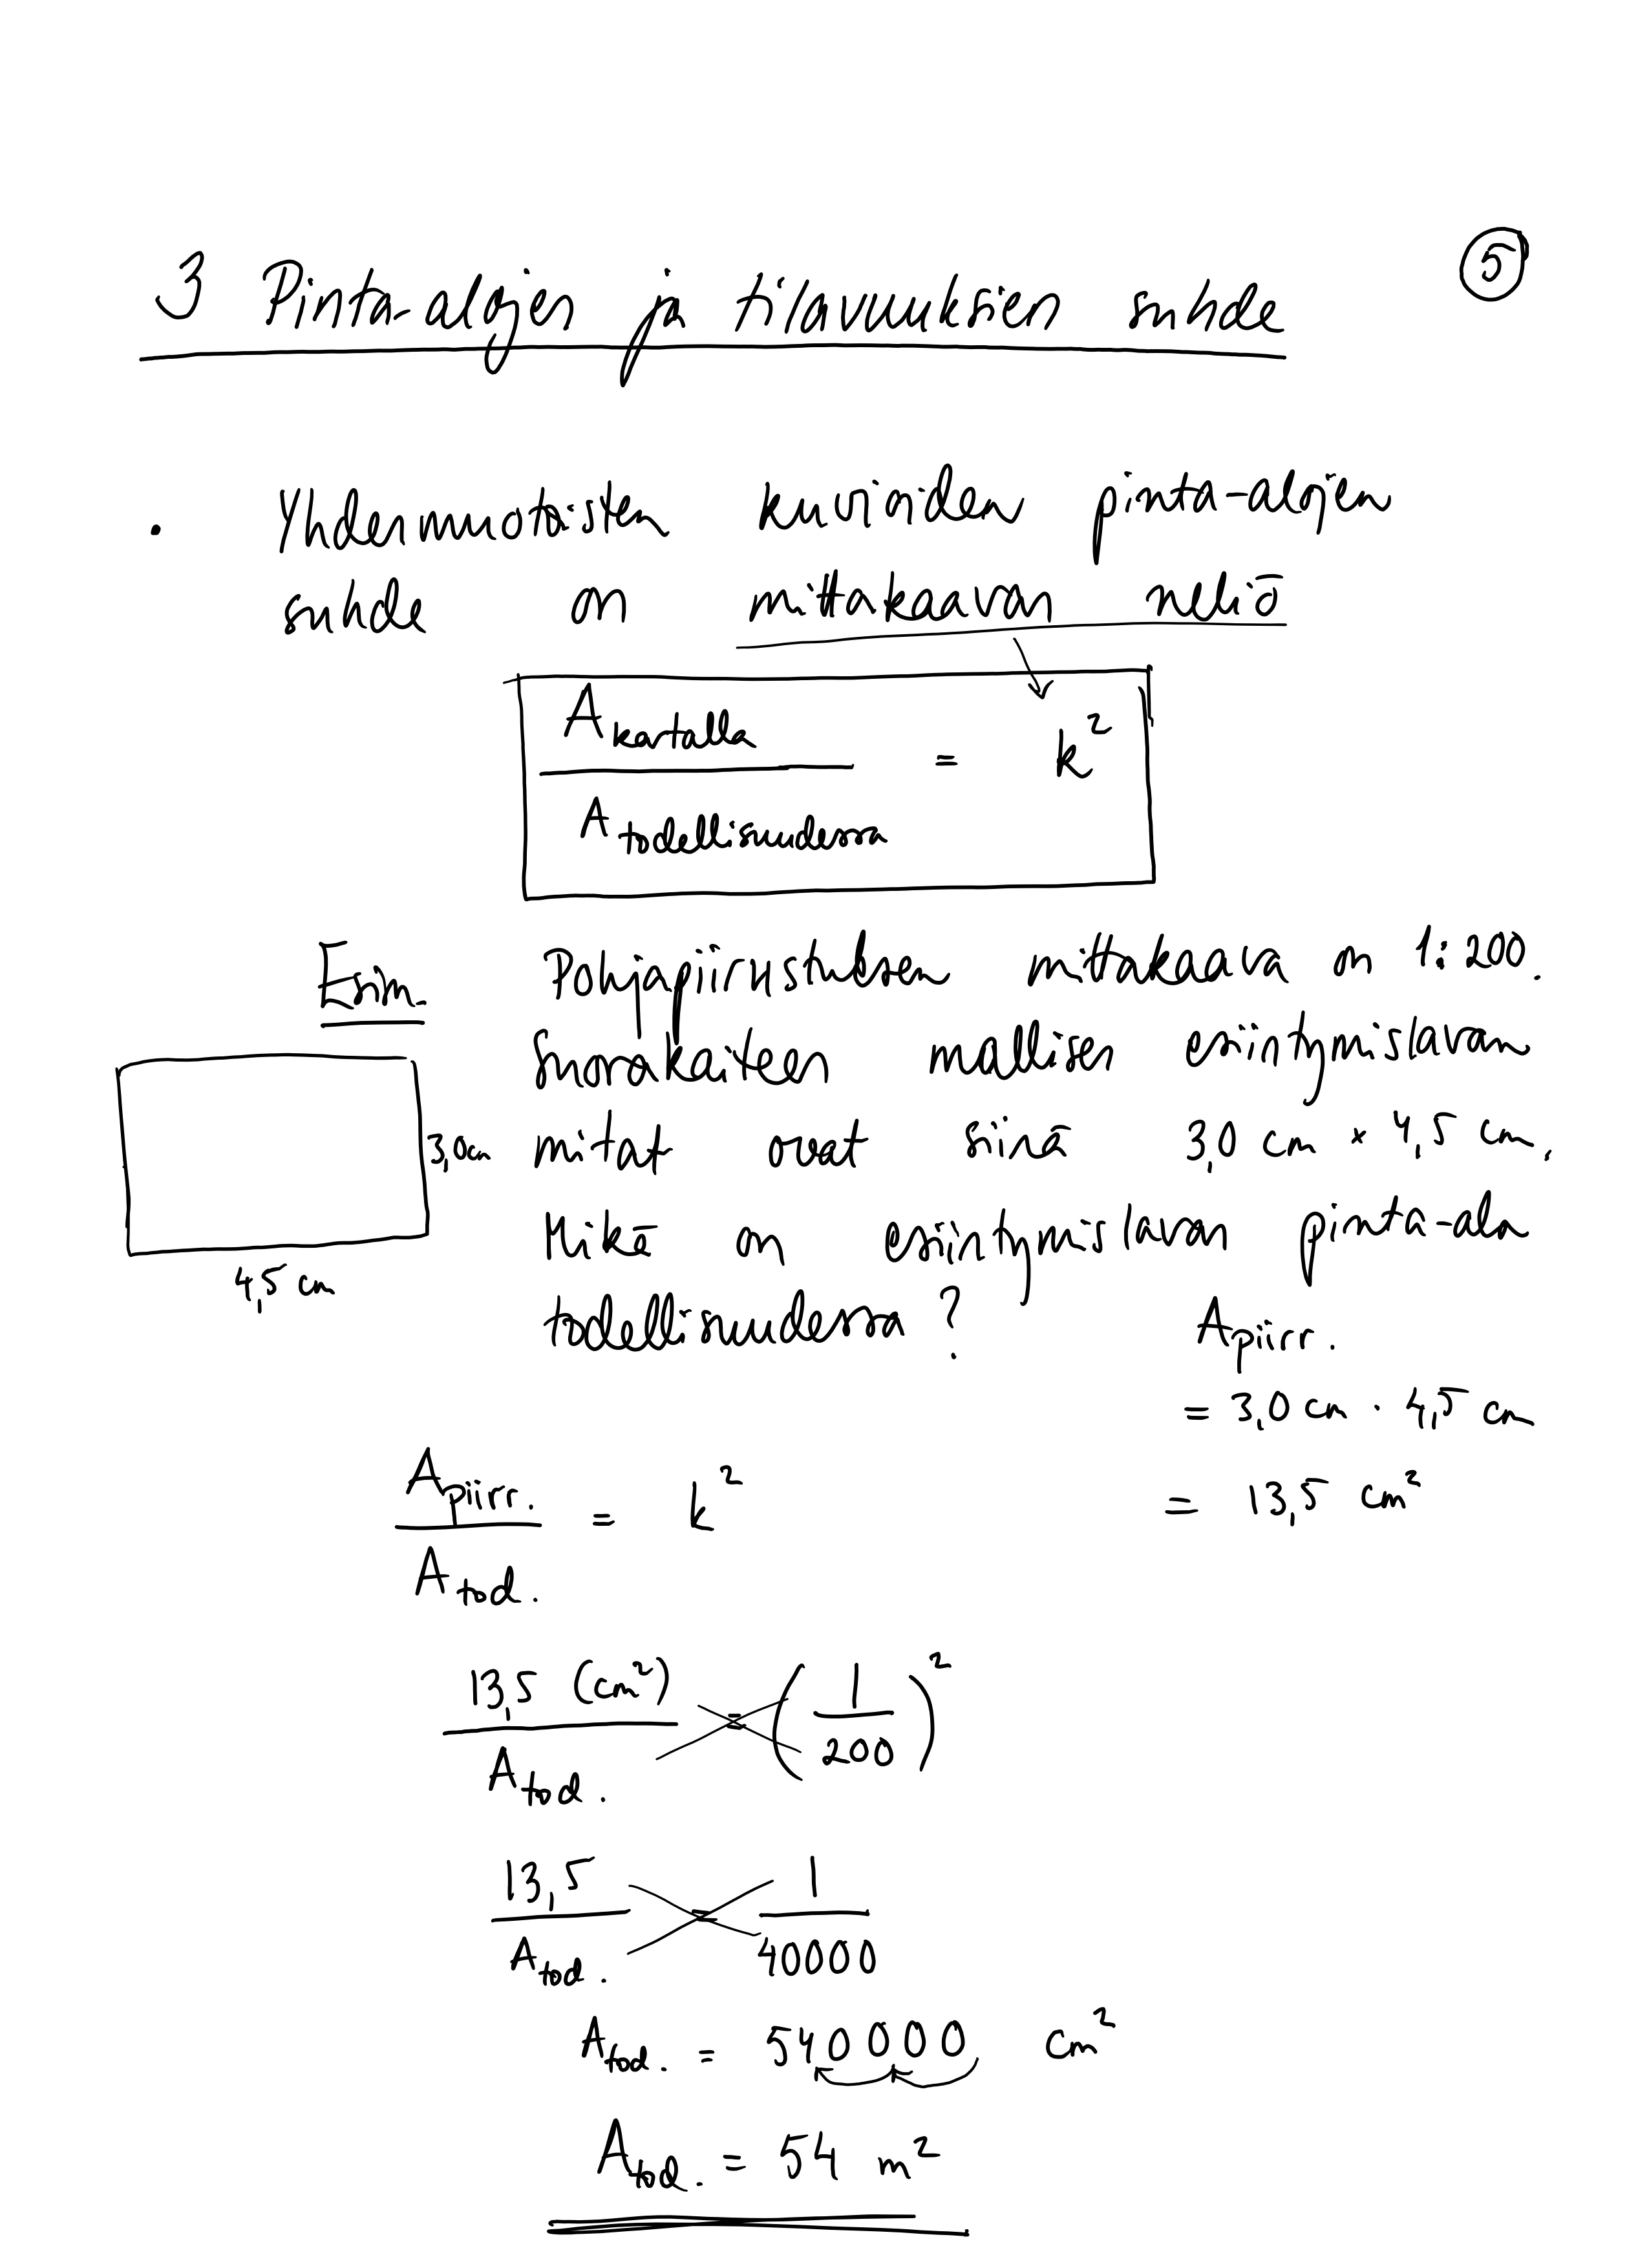 3 Pinta-alojen ja tilavuuksien suhde
5
• Yhdenmuotoisten kuvioiden pinta-alojen
suhde on mittakaavan neliö
A kartalla / A todellisuudessa = k²
Esim. Pohjapiirustuksen mittakaava on 1:200.
Suorakaiteen mallisen esiintymislavan
mitat ovat siinä 3,0 cm × 4,5 cm.
3,0cm
Mikä on esiintymislavan pinta-ala
4,5 cm
todellisuudessa?
A piirr.
= 3,0 cm · 4,5 cm
= 13,5 cm²
A piirr. / A tod. = k²
13,5 (cm²) / A tod. = (1 / 200)²
13,5 / A tod. = 1 / 40000
A tod. = 540000 cm²
A tod. = 54 m²